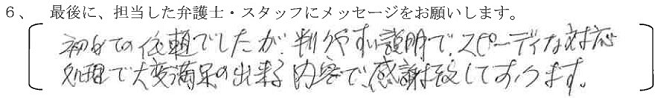 6、 最後に、担当した弁護士・スタッフにメッセージをお願いします。
初めての依頼でしたが、判りやすい説明で、スピーディな対応
処理で大変満足の出来る内容で、感謝致しております。